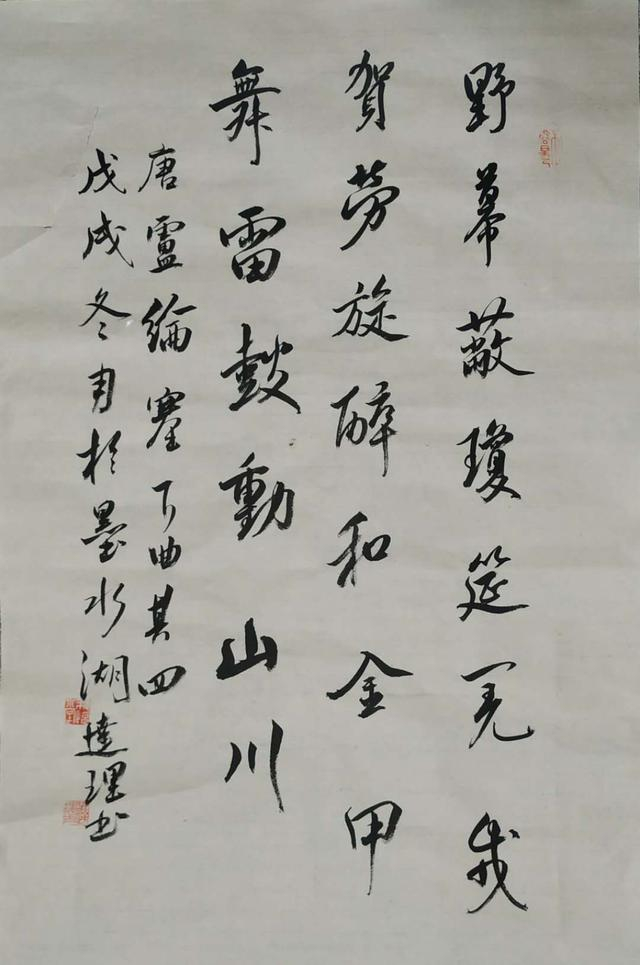 野幕蔽瓊筵羌戎
賀勞旋醉和金甲
舞雷鼓動山川
唐盧綸塞下曲其四
戊戌冬月於墨水湖達理书